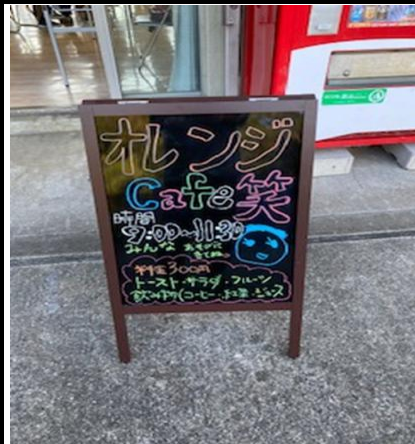 オレンジ
Cafe笑
時間
9:00～11:30
みんな あそびに
きてね。
料金300円
トースト・サラダ・フルーツ
飲み物(コーヒー・紅茶・ジュース